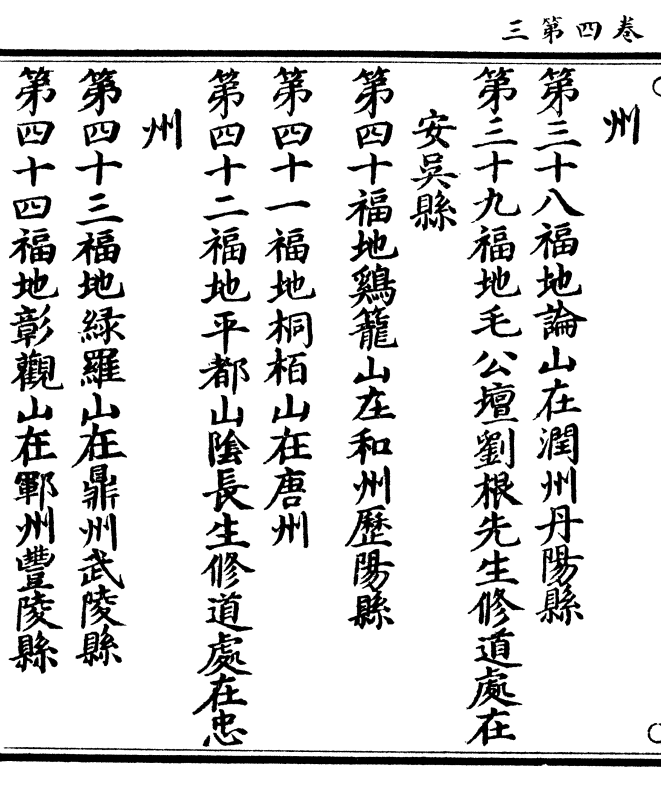 卷四第三
州
第三十八福地論山在潤州丹陽縣
第三十九福地毛公壇劉根先生修道處在
安吳縣
第四十福地鷄籠山在和州歷陽縣
第四十一福地桐栢山在唐州
第四十二福地平都山陰長生修道處在忠
州
第四十三福地緑羅山在鼎州武陵縣
第四十四福地彰觀山在鄿州豐陵縣